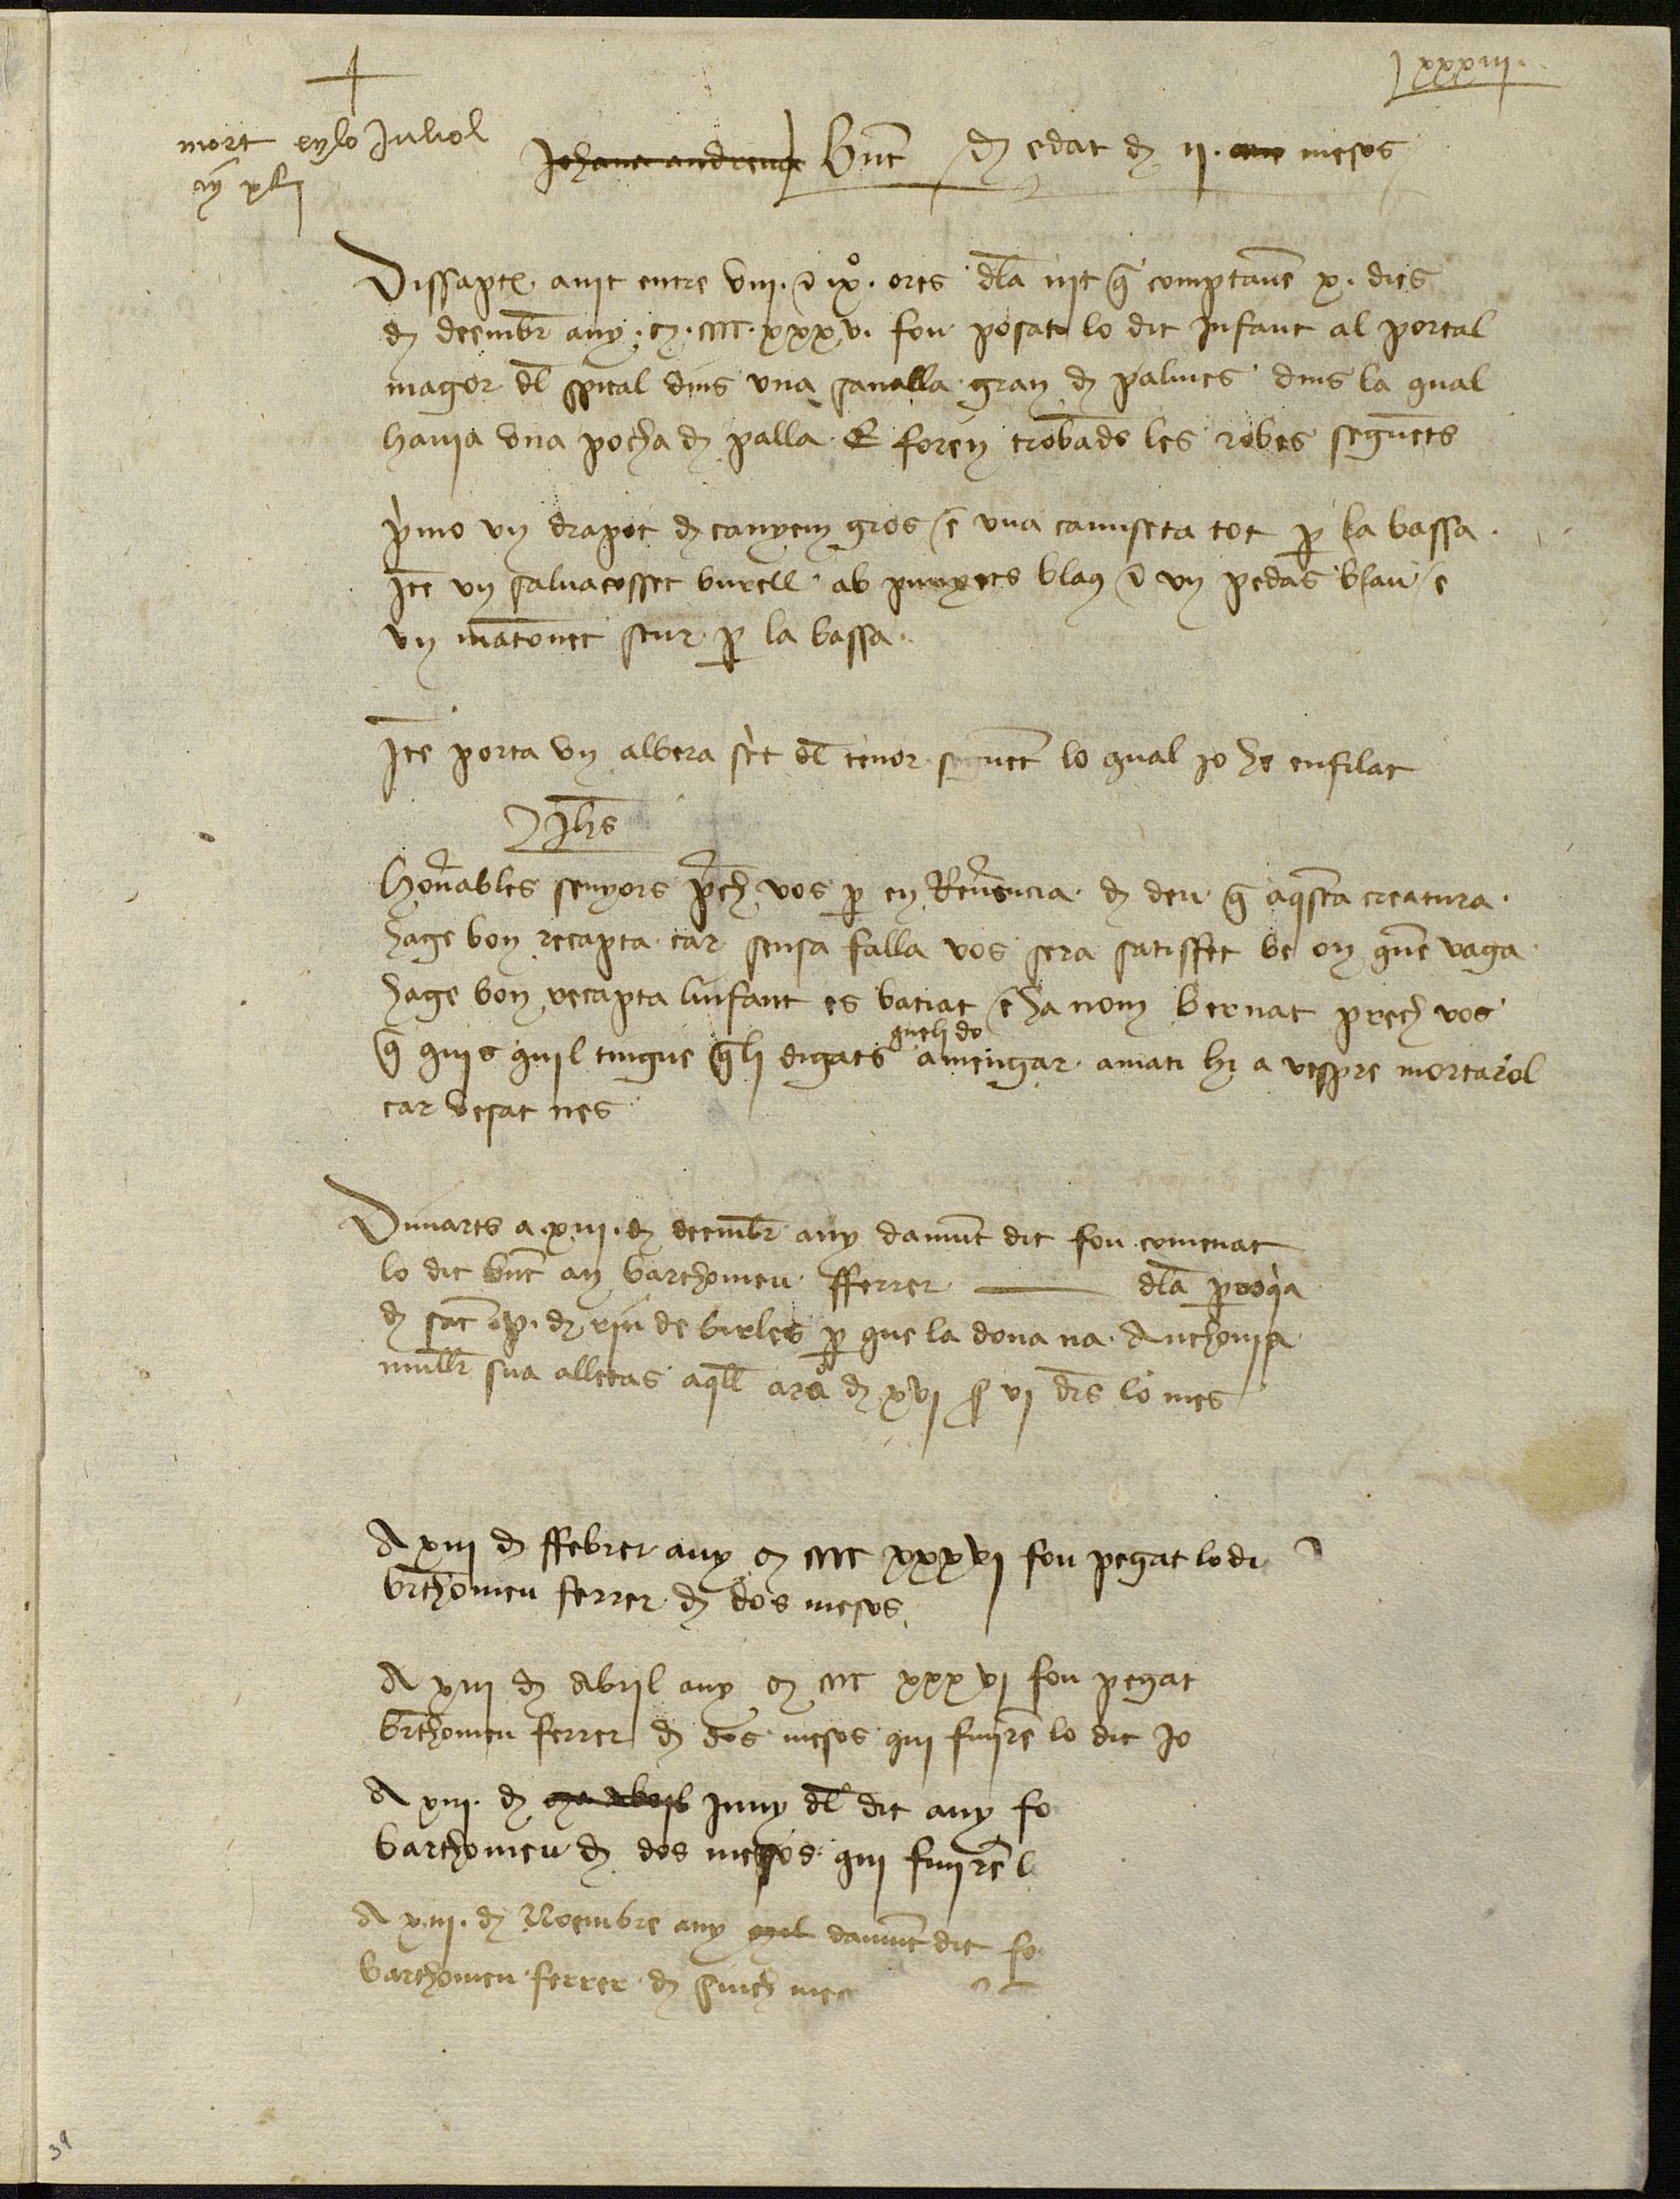 lxxxiiii
mort en lo Juliol
Johana andreua Bnt de edat de ii. mesos
Dissapte a nit entre viii. e ix. ores dla nit q comptauem x. dies
de deembr any . m . cccc . xxxv. fou posat lo dit Infant al portal
magor dl spital dins vna sanalla gran de palmes dins la qual
hauia vna pocha de palla. E foren trobads les robes seguets
primo vn drapet de canyem gros e vna camiseta tot p la bassa.
Ite vn saluacosset burell ab punyets blaus e vn pedas blau e
vn mantonet scur p la bassa.
Ite porta vn albera scrit dl tenor seguet lo qual jo he enfilat
Jhs
Honrables senyors prech vos p en Reuerencia de deu q aqsta creatura.
hage bon recapta car sensa falla vos sera satisffet be on qune vaga
hage bon recapta linfant es batiat e ha nom bernat prech vos
q quis quil tingue qli digats queli do a mengar a mati hi a vespre mortarol
car vesat nes
Dimarts a xiii. de deembr any damunt dit fou comenat
lo dit bnt a n barthomeu fferrer dla proqia
de sat de riu de birles p que la dona na Anthonia
mullr sua alletas aqll a rao de xvi s vi drs lo mes
A xiii de ffebrer any m cccc xxxvi fou pegat lo di
brthomeu ferrer de dos mesos
A xiii de Abril any m cccc xxxvi fou pegat
brthomeu ferrer de dos mesos qui finiren lo dit jo
A xiii. de juny dl dit any fo
barthomeu de dos mesos qui finiren l
A xiii. de Noembre any damunt dit fo
barthomeu ferrer de sinch mes
39